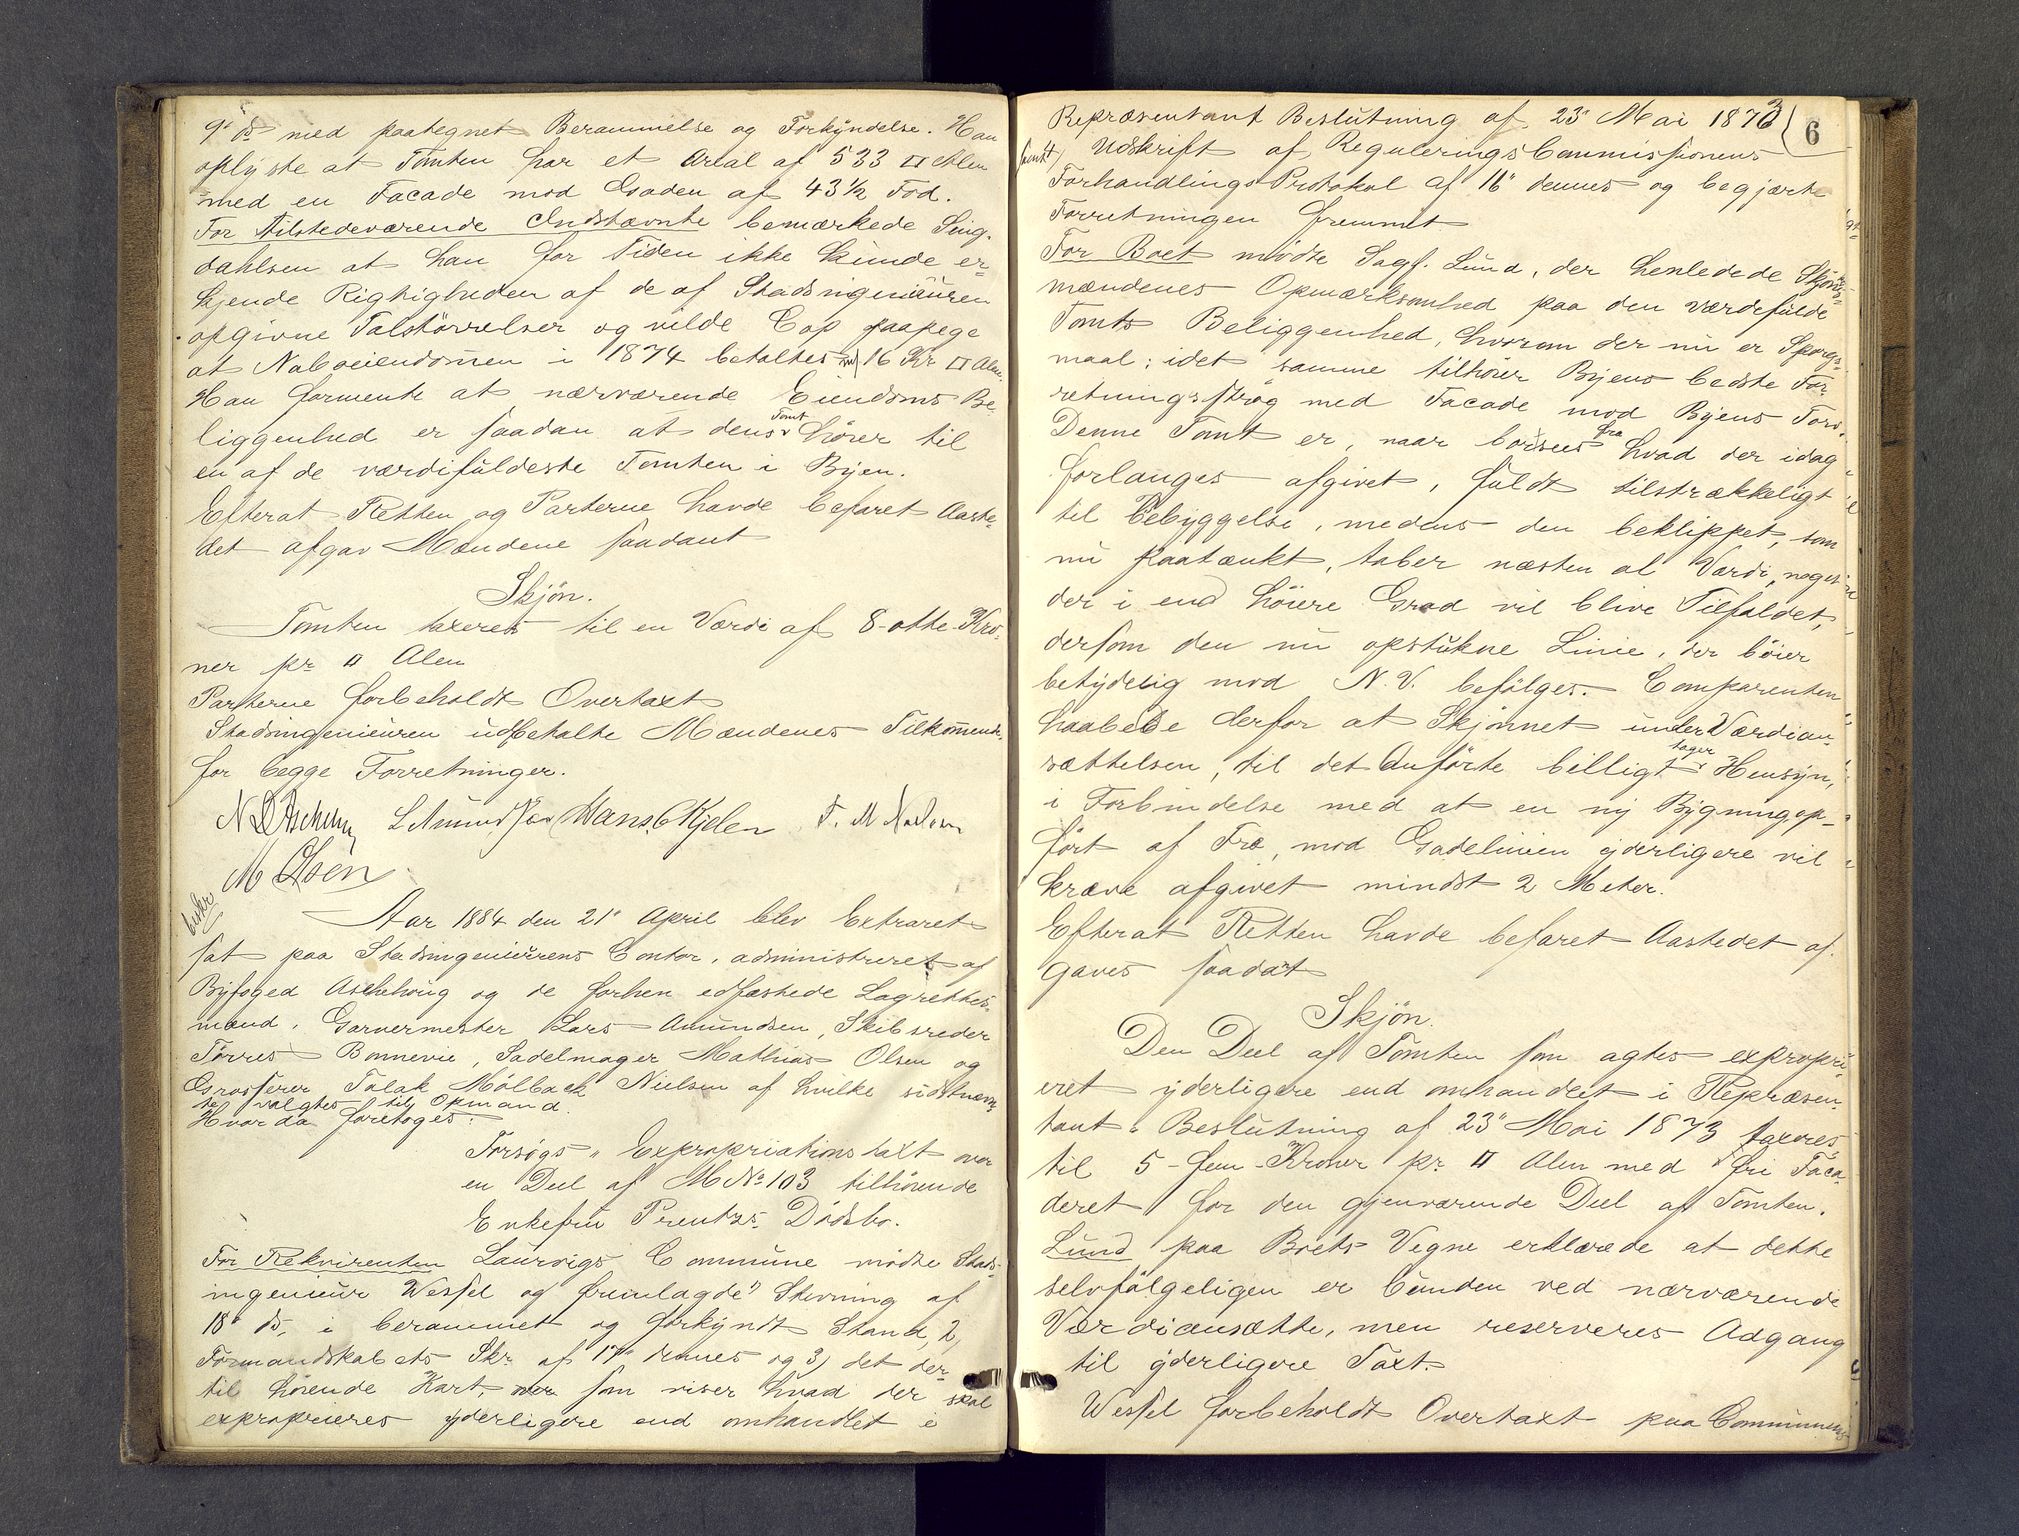 9' ds med paategnet Berammelse og Forkyndelse. Han
oplyste at Tomten har et Areal af 533 □ Alen
med en Facade mod Gaden af 43½ Fod.
For tilstedeværende Indstævnte bemærkede Ling-
dahlsen at han for Tiden ikke kunde er-
kjende Rigtigheden af de af Stadsingeniøuren
opgivne Talstörrelser og vilde Cop paapege
at Naboeiendommen i 1874 betaltes med 16 Kr □ Alen.
Han formente at nærværende Eiendoms Be-
liggenhed er saadan at dens Tomt hörer til
en af de værdifuldeste Tomten i Byen.
Efterat Retten og Parterne havde befaret Aaste-
det afgav Mændene saadant
Skjön.
Tomten taxeres til en Værdi af 8 - otte - Kro-
ner pr □ Alen
Parterne forbeholdt Overtaxt
Stadsingenieuren udbetalte Mændenes Tilkommende
for begge Forretninger.
N D Aschehoug L. Amundsen Hans C Kjelen F. M. Nielsen
M Olsen
Aar 1884 den 21' April blev Extraret
sat paa Stadsingenieurens Contor, administreret af
Byfoged Aschehoug og de forhen edfæstede Lagrettes-
mænd, Garvermester Lars Amundsen, Skibsreder
Törres Bonnevie, Sadelmager Mathias Olsen og
Grosserer Talak Mölbach Nielsen af hvilke sidstnævn-
te valgtes til Opmand.
Hvorda foretoges:
Forsögs " Expropriationstaxt over
en Deel af M No 103 tilhörende
Enkefru Prentzs Dödsbo.
For Rekvirenten Laurvigs Commune mödte Stads-
ingenieur Wessel og fremlagde 1) Stevning af
18' ds, i berammet og forkyndt Stand, 2,
Formandskabets Skr. af 17' dennes og 3, det der-
til hörende Kart, som viser hvad der skal
exproprieres yderligere end omhandlet i
6
Repræsentant Beslutning af 23' Mai 1873
samt 4, Udskrift af ReguleringsCommissionens
ForhandlingsProtokol af 16' dennes og begjærte
Forretningen fremmet
For Boet mödte Sagf. Lund, der henledede Skjöns-
mændenes Opmærksomhed paa den værdefulde
Tomts Beliggenhed, hvorom der nu er Spörgs-
maal; idet samme tilhörer Byens bedste For-
retningsströg med Facade mod Byens Torv.
Denne Tomt er, naar bortsees fra hvad der idag
forlanges afgivet, fuldt tilstrækkeligt
til Bebyggelse, medens den beklippet, som
nu paatænkt, taber næsten al Værdi, noget
der i end höiere Grad vil blive Tilfældet,
dersom den nu opstukne Linie, der böier
betydelig mod N. V. befölges. Comparenten
haabede derfor at Skjönnet under Værdian-
sættelsen, til det Anförte billigt tager Hensyn,
i Forbindelse med at en ny Bygning op-
fört af Træ, mod Gadelinien yderligere vil
kræve afgivet mindst 2 Meter.
Efterat Retten havde befaret Aastedet af-
gaves saadat
Skjön.
Den Deel af Tomten som agtes expropri-
eret yderligere end omhandlet i Repræsen-
tant - Beslutning af 23' Mai 1873 taxeres
til 5 - fem - Kroner pr □ Alen med fri Faca-
deret for den gjenværende Deel af Tomten.
Lund paa Boets Vegne erklærede at dette
selvfölgeligen er bunden ved nærværende
Værdiansætte, men reserveres Adgang
til yderligere Taxt.
Wessel forbeholdt Overtaxt paa Communens